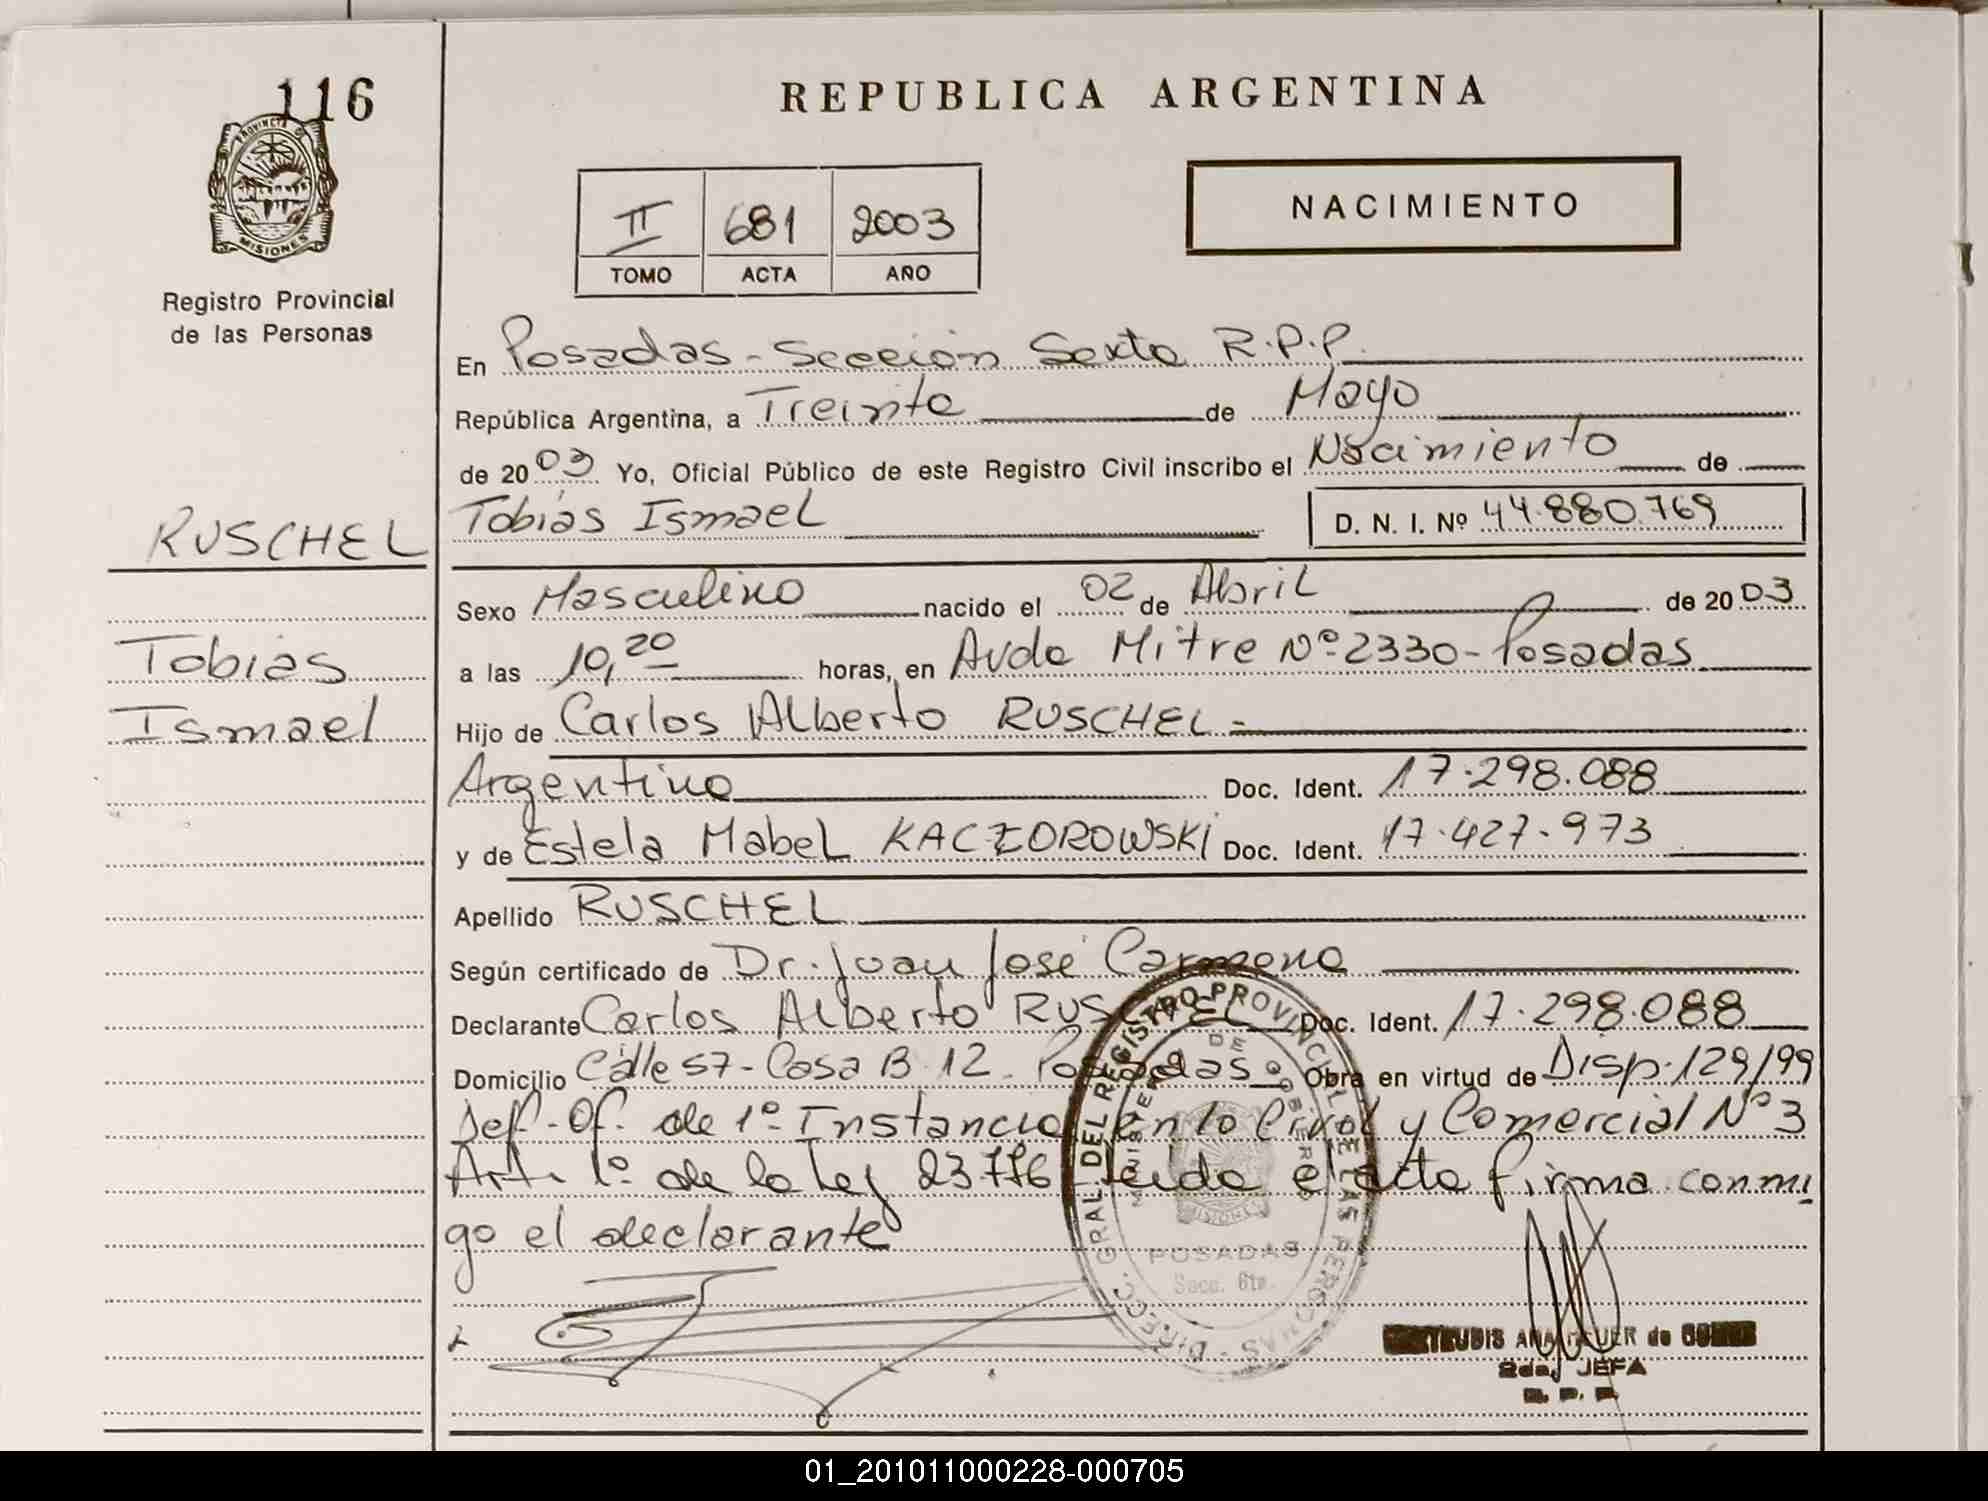 116
REPUBLICA ARGENTINA
PROVINCIA DE
MISIONES
Registro Provincial
de las Personas
NACIMIENTO
II 681 2003
TOMO ACTA AÑO
En Posadas - Sección Sexta R.P.P.
República Argentina, a Treinta de Mayo
de 2003 Yo, Oficial Público de este Registro Civil inscribo el Nacimiento de
RUSCHEL
Tobias Ismael D. N. I. Nº 44.880.769
Sexo Masculino nacido el 02 de Abril de 2003
Tobias
a las 10,20 horas, en Avda Mitre Nº 2330 - Posadas
Ismael
Hijo de Carlos Alberto RUSCHEL -
Argentino Doc. Ident. 17.298.088
y de Estela Mabel KACZOROWSKI Doc. Ident. 17.427.973
Apellido RUSCHEL
Según certificado de Dr. Juan José Carmona
Declarante Carlos Alberto RUSCHEL Doc. Ident. 17.298.088
Domicilio Calle 57 - Casa B 12 - Posadas Obra en virtud de Disp. 129/99
Def. Of. de 1º Instancia en lo Civil y Comercial Nº 3
Art. 1º de la Ley 23.776 Leída el acta firma conmi
go el declarante
DIRECC. GRAL. DEL REGISTRO PROVINCIAL DE LAS PERSONAS
MINISTERIO DE GOBIERNO
MISIONES
POSADAS
Secc. 6ta.
ANA de
2da. JEFA
R. P. P.
01_201011000228-000705